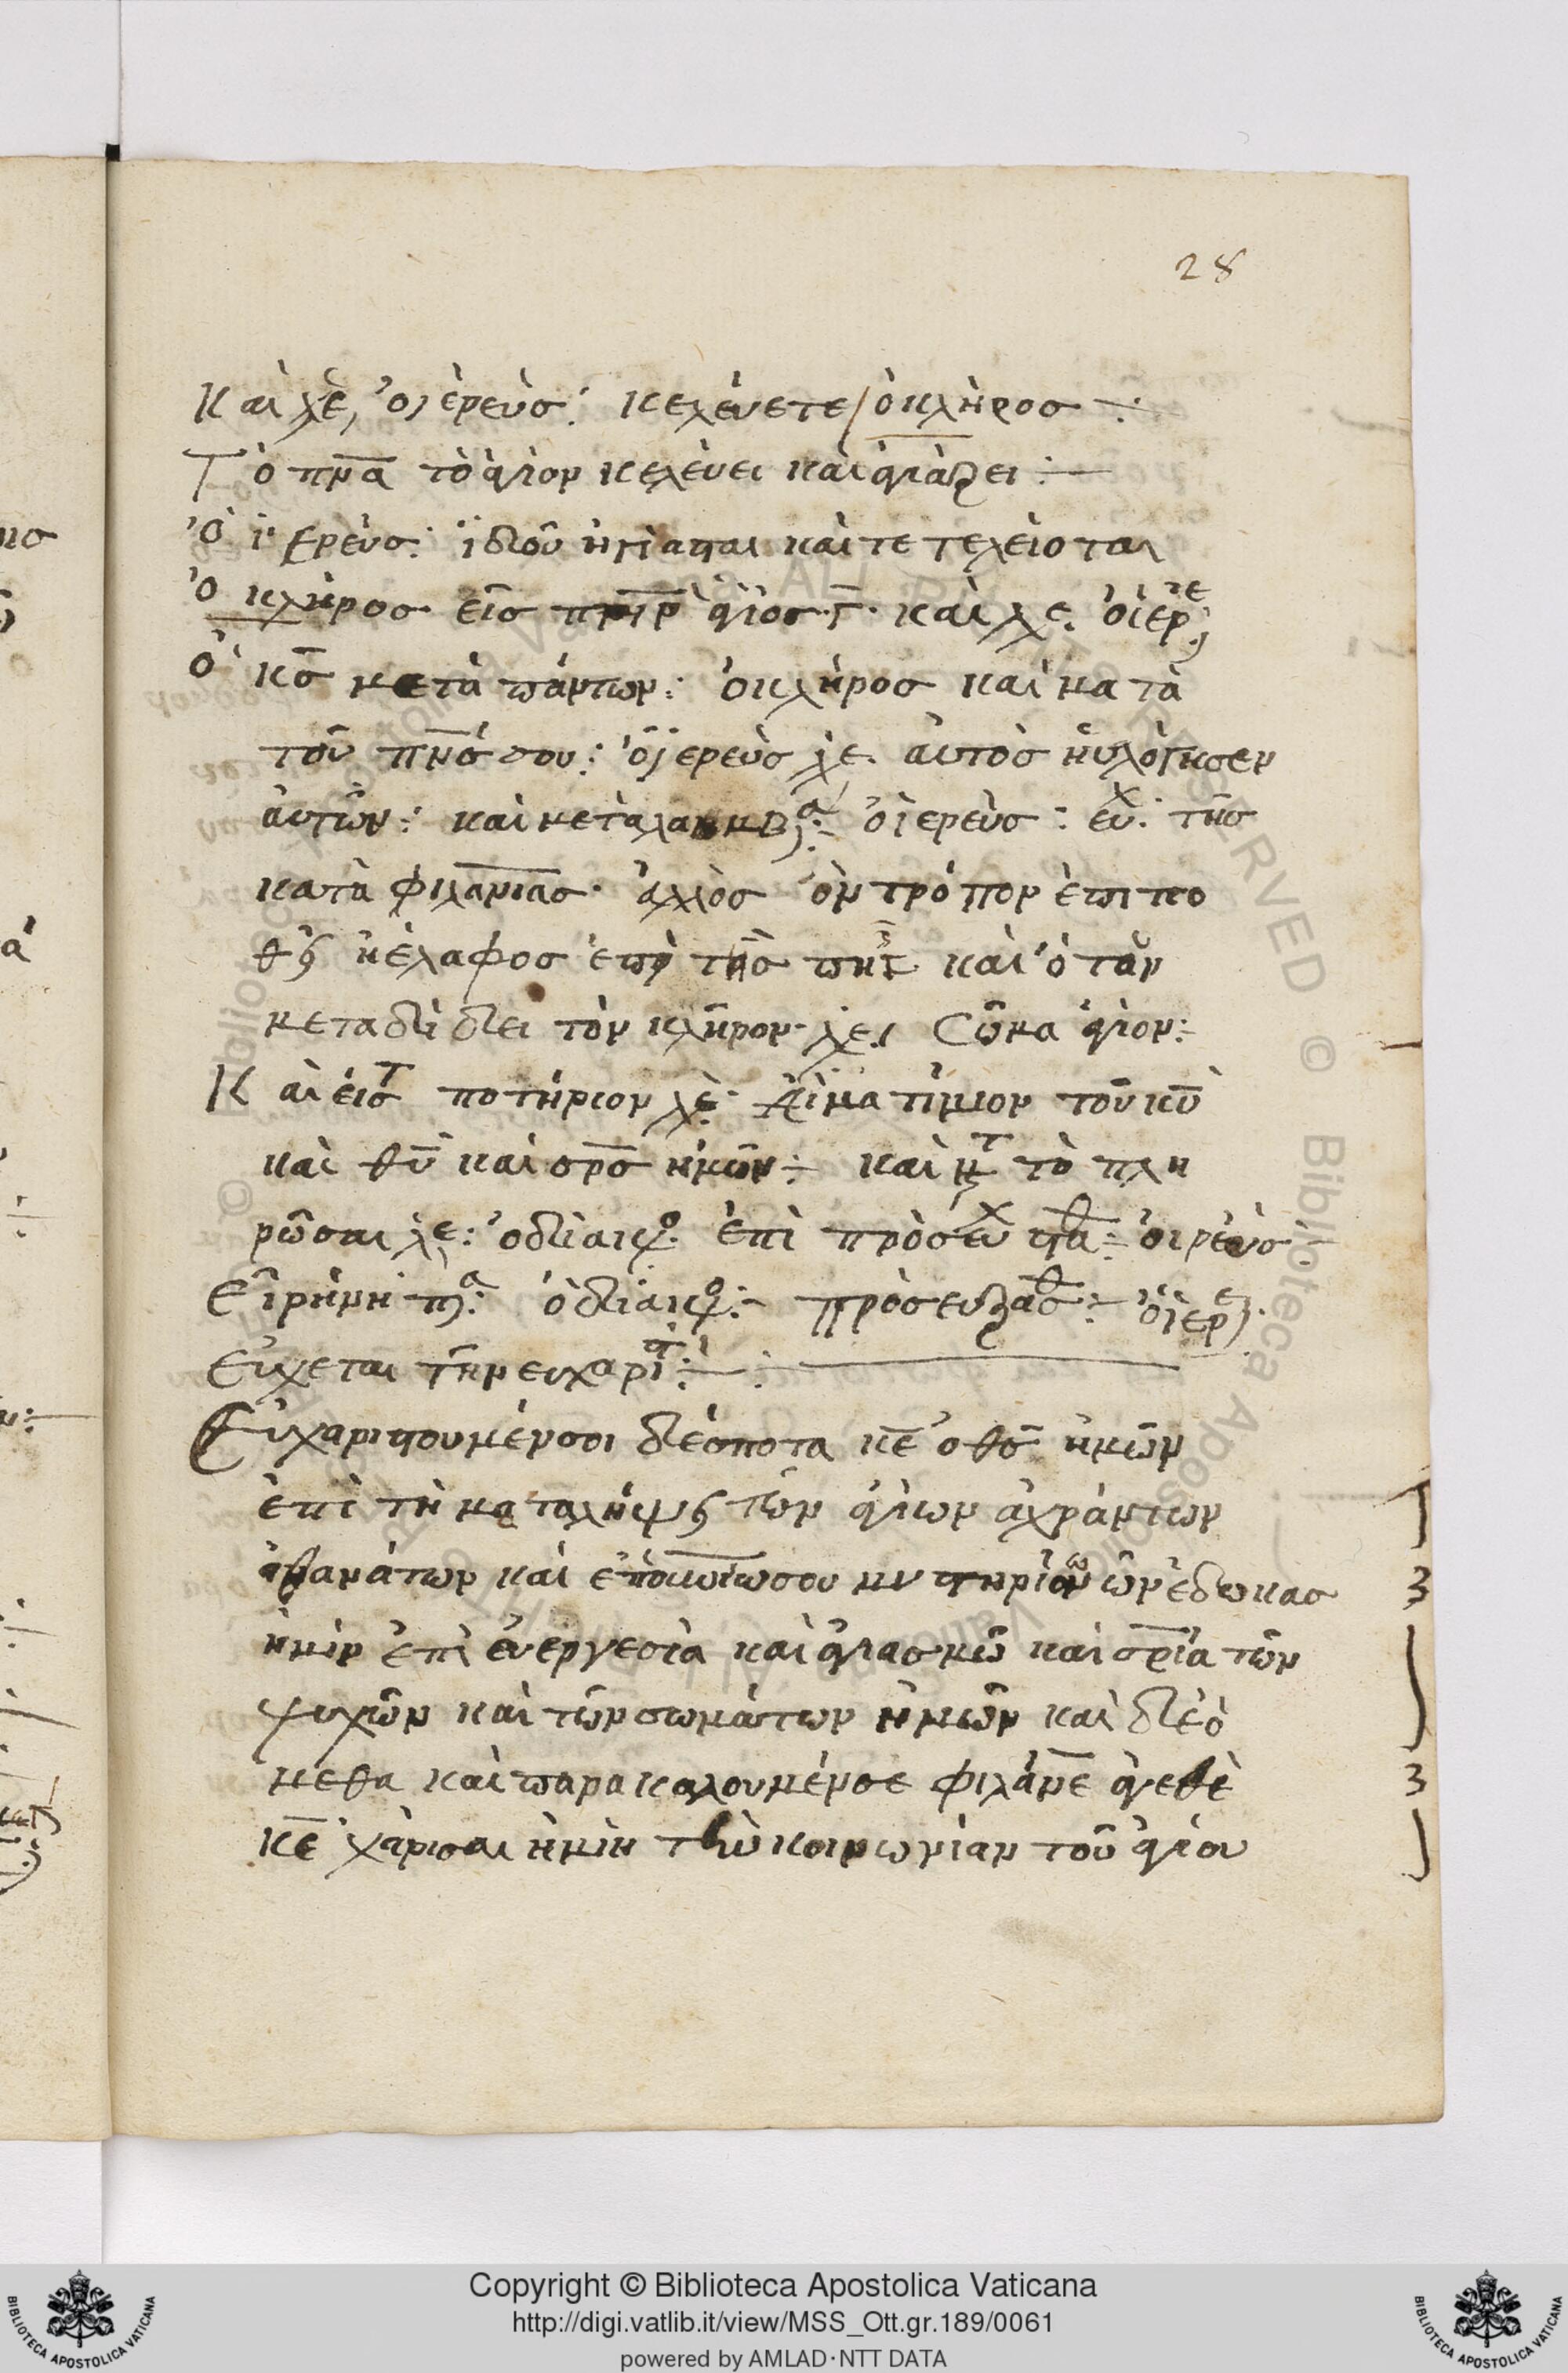 28
Καὶ λε, ὁ ἱερεὺσ: κελέυετε / ὁ κλῆροσ ÷
Τὸ πν̅α τὸ ἅγιον κελέυει καὶ ἁγιάζει :—
Ὁ ἱερεύσ: ἰδιοῦ ἡγίασται καὶ τετελείοται
Ὁ κλῆροσ εἷσ π̅η̅ρ̅ ἅγιοσ · γ̅ · καὶ λε. ὁ ἱερε
Ὁ κ̅σ μετὰ πάντων: ὁ κλῆροσ καὶ μα τὰ
τοῦ πν̅σ σου: ὁ ἱερεὺσ λε. ἀυτὸσ ἠυλόγησεν
ἀυτῶν: καὶ μεταλαμβ ὁ ἱερεὺσ: ευχ: τῆσ
κατὰ φιλαν̅ιασ· ἄλλοσ ὃν τρόπον ἐπιπο
θεῖ ἡ ἔλαφοσ ἐπὶ τὰσ πηγ καὶ ὁτὰν
μεταδίδει τὸν κλῆρον λε. Σῶμα ἅγιον:
Καὶ εισ τ ποτήριον λε: Αἷμα τίμιον τοῦ κ̅υ
καὶ θ̅υ καὶ σ̅ρ̅σ ἡμῶν÷ καὶ μτ τὸ πλη
ρῶσαι λε: ὁ διακο ἐπὶ πρόσευχ στα ÷ ὁ ιρεὺσ ÷
Εἰρήνη πα: ὁ διακο :- πρὸσευξασθ :- ὁ ἱερε
Εὔχεται τὴν ευχαριστ :—:—
Ευχαριστουμένσοι δέσποτα κ̅ε ὁ θ̅σ ἡμῶν
ἐπὶ τὴ ματαλήψει τῶν ἁγίων ἀχράντων
ἀθανάτων καὶ ἐπου̅ν̅ιωσου μυστηρίων ὧν ἔδωκασ
ἡμῖν ἐπὶ ἐυεργεσία καὶ ἁγιασμῶ καὶ σ̅ρ̅ία τῶν
ψυχῶν καὶ τῶν σωμάτων ἡμῶν καὶ δεό
μεθα καὶ παρακαλουμένσε φιλάν̅ε ἀγεθὲ
κ̅ε χάρισαι ἡμῖν τὴν κοινωνίαν τοῦ ἁγίου
Copyright © Biblioteca Apostolica Vaticana
http://digi.vatlib.it/view/MSS_Ott.gr.189/0061
powered by AMLAD·NTT DATA